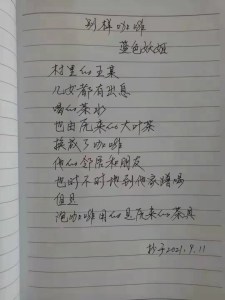 别样咖啡
蓝色妖姬
村里的王某
儿女都有出息
喝的茶水
也由原来的大叶茶
换成了咖啡
他的邻居和朋友
也时不时地到他家蹭喝
但是
泡咖啡用的是原来的茶具
抄于2021.9.11